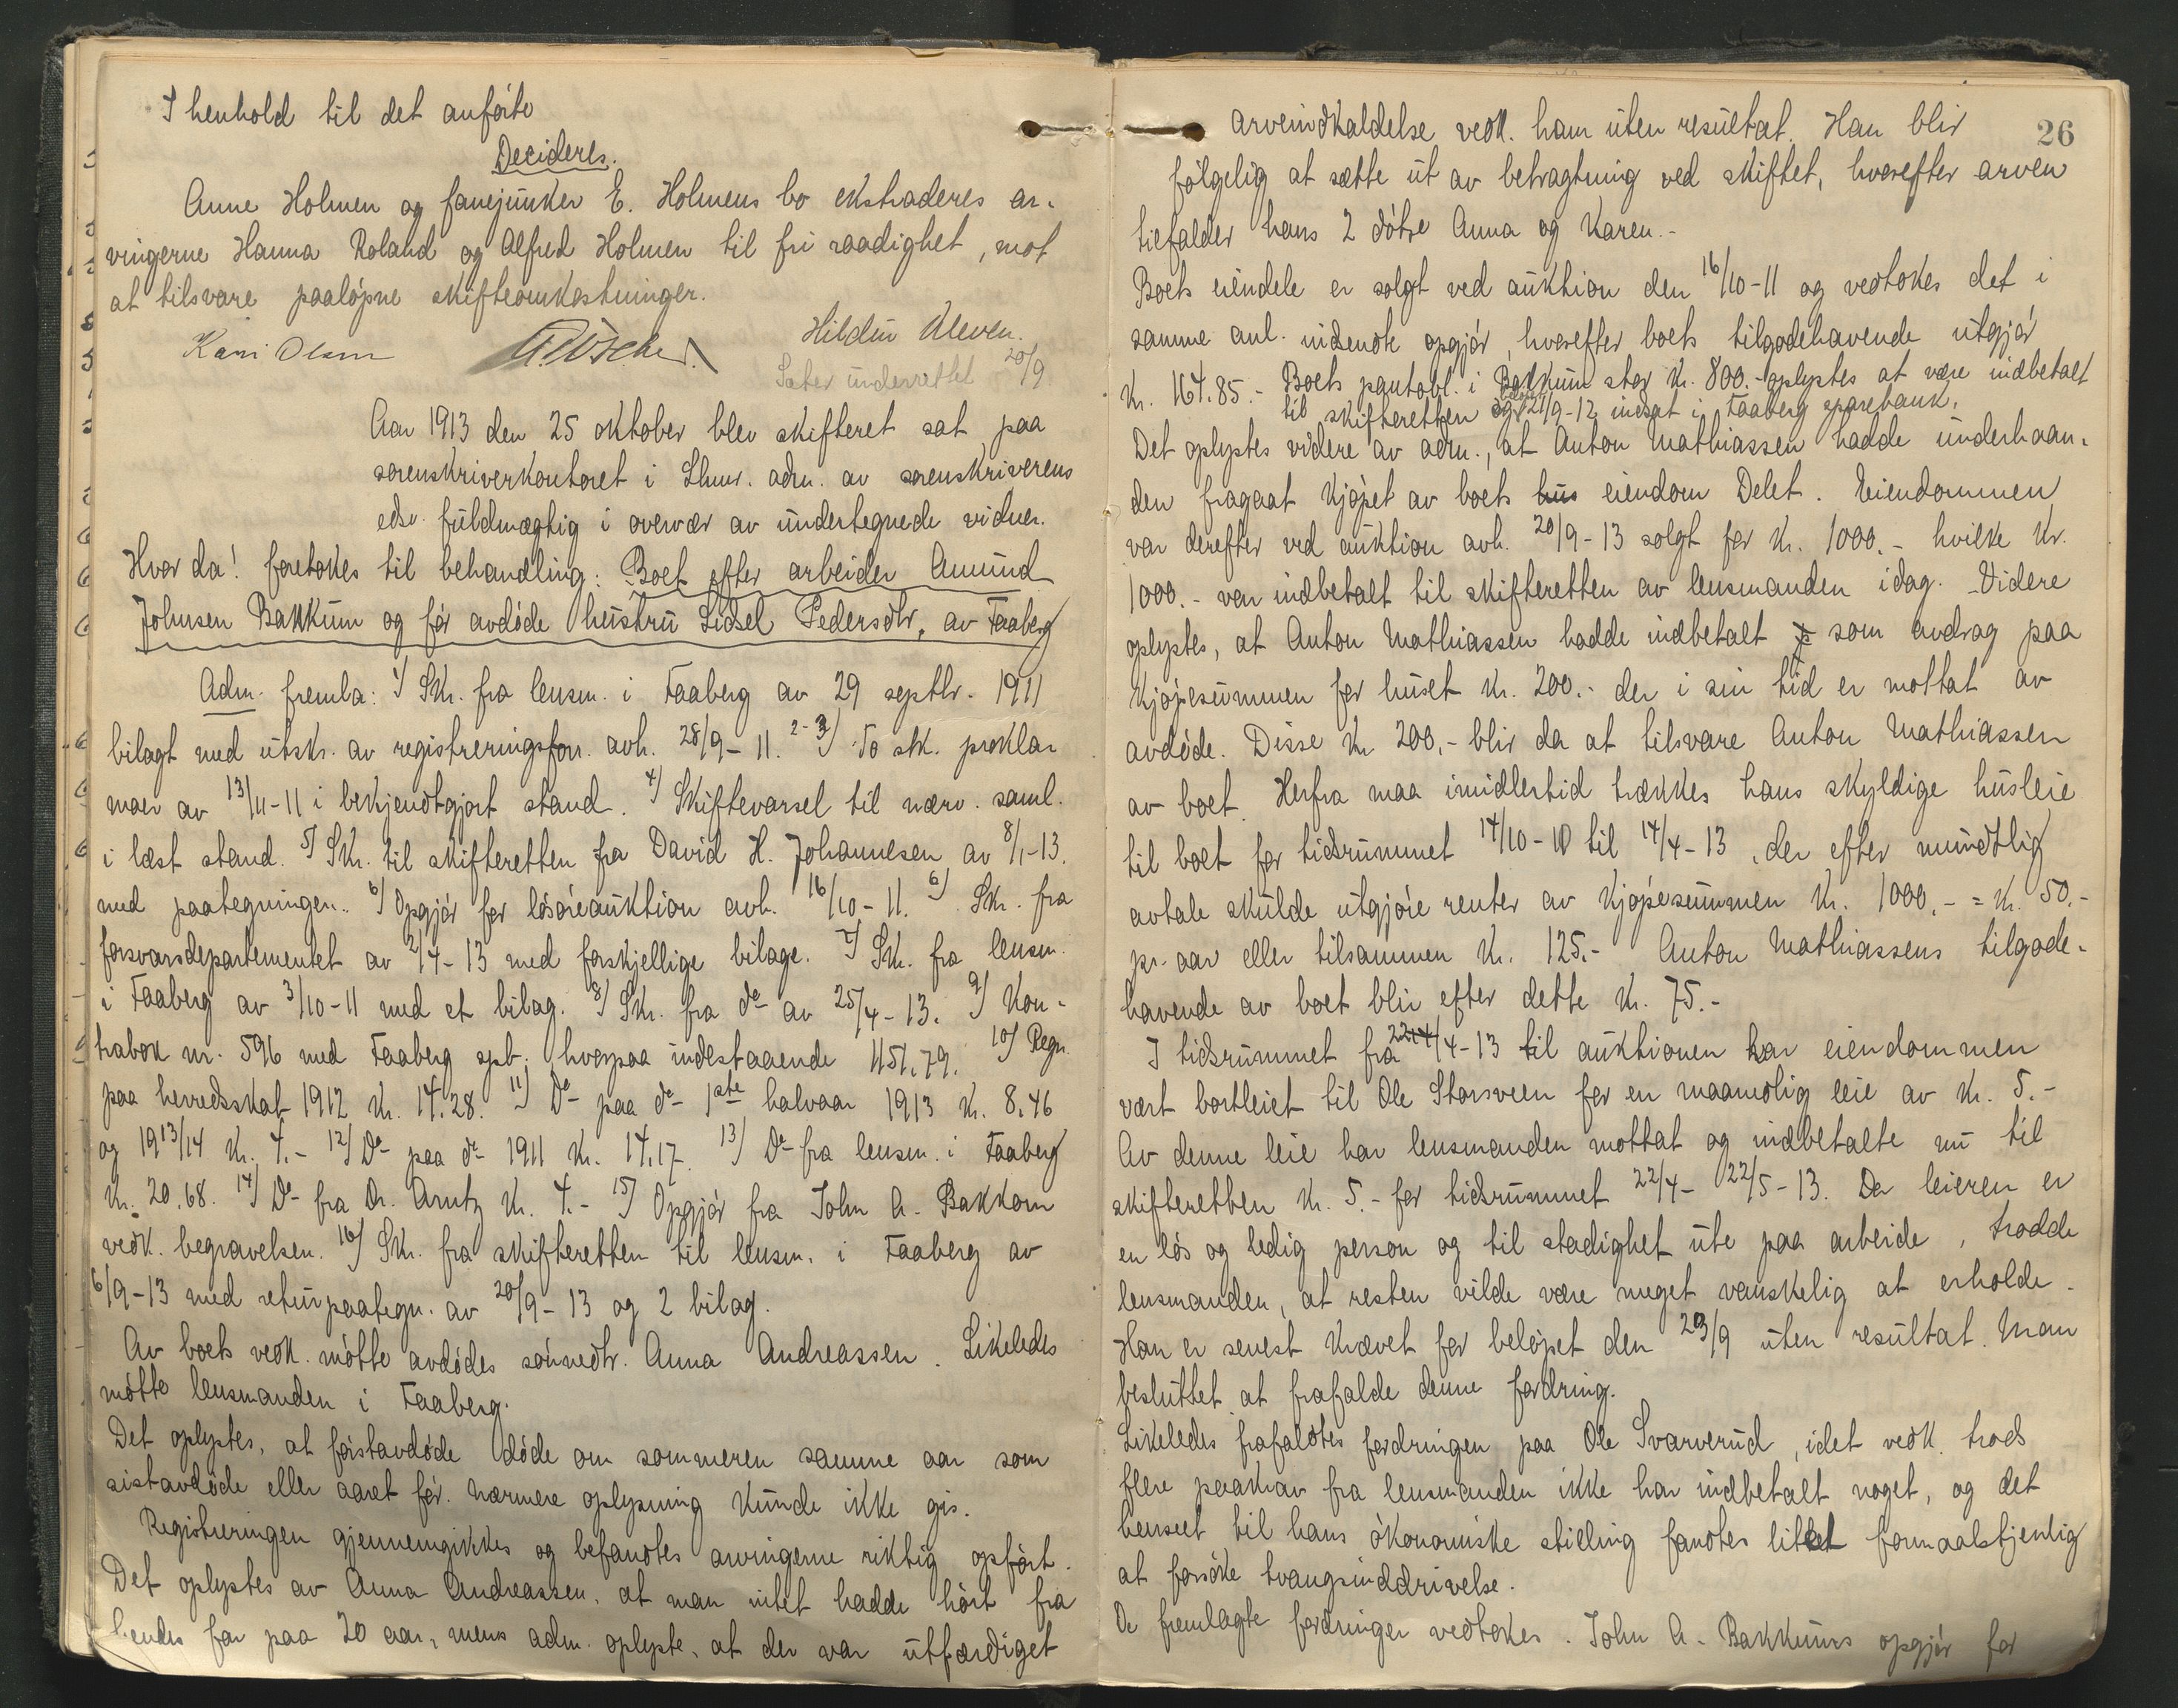 I henhold til det anførte
Decideres.
Anne Holmen og fanejunker E. Holmens bo ekstraderes ar-
vingerne Hanna Roland og Alfred Holmen til fri raadighet, mot
at tilsvare paaløpne skifteomkostninger.
Kari Olsen
Hildur Kleven.
Sater underrettet 20/9
Aar 1913 den 25 oktober blev skifteret sat paa
sorenskriverkontoret i Lhmr. adm. av sorenskriverens
edsv. fuldmægtig i overvær av undertegnede vidner.
Hvor da! foretokes til behandling: Boet efter arbeider Amund
Johnsen Bakkum og før avdøde hustru Sidsel Pedersdtr, av Faaberg
Adm. fremla: 1) Skr. fra lensm. i Faaberg av 29 septbr. 1911
bilagt med utskr. av registreringsforr. avh. 28/9-11. 2-3) To stk. prokla-
maer av 13/11-11 i bekjendtgjort stand. 4) Skiftevarsel til nærv. saml.
i læst stand. 5) Skr. til skifteretten fra David H. Johannesen av 8/1-13.
med paategninger. 6) Opgjør for løsøreauktion avh. 16/10-11. 6) Skr. fra
forsvarsdepartementet av 2/4-13 med forskjellige bilage. 7) Skr. fra lensm.
i Faaberg av 3/10-11 med et bilag. 8) Skr. fra do av 25/4-13. 9) Kon-
trabok nr. 596 med Faaberg spb., hvorpaa indestaaende 1151,79. 10) Regn.
paa herredsskat 1912 kr. 14.28. 11) Do paa do 1ste halvaar 1913 kr. 8,46
og 1913/14 kr. 4.- 12) Do paa do 1911 kr. 14,17. 13) Do fra lensm. i Faaberg
kr. 20,68. 14) Do fra Dr. Arntz kr. 4.- 15) Opgjør fra John A. Bakkom
vedk. begravelsen. 16) Skr. fra skifteretten til lensm. i Faaberg av
6/9-13 med returpaategn. av 20/9-13 og 2 bilag.
Av boets vedk. møtte avdødes sønnedtr. Anna Andreassen. Likeledes
møtte lensmanden i Faaberg.
Det oplystes, at førstavdøde døde om sommeren samme aar som
sistavdøde eller aaret før. Nærmere oplysning kunde ikke gis.
Registreringen gjennemgikkes og befandtes arvingerne riktig opført.
Det oplystes av Anna Andreassen, at man intet hadde hørt fra
hendes far paa 20 aar, mens adm. oplyste, at der var utfærdiget
26
arveindkaldelse vedk. ham uten resultat. Han blir
følgelig at sætte ut av betragtning ved skiftet, hvorefter arven
tilfalder hans 2 døtre Anna og Karen.-
Boets eiendele er solgt ved auktion den 16/10-11 og vedtokes det i
samme anl. indsendte opgjør, hvorefter boets tilgodehavende utgjør
kr. 164.85.- Boets pantobl. i Bakkum stor kr. 800.- oplystes at være indbetalt
til skifteretten og 21/9-12 indsat i Faaberg sparebank.
Det oplystes videre av adm., at Anton Mathiassen hadde underhaan-
den fragaat kjøpet av boets hus eiendom Delet. Eiendommen
var derefter ved auktion avh. 20/9-13 solgt for kr. 1000.- hvilke kr.
1000.- var indbetalt til skifteretten av lensmanden idag. Videre
oplystes, at Anton Mathiassen hadde indbetalt som avdrag paa
kjøpesummen for huset kr. 200.- der i sin tid er mottat av
avdøde. Disse kr. 200.- blir da at tilsvare Anton Mathiassen
av boet. Herfra maa imidlertid trækkes hans skyldige husleie
til boet for tidsrummet 14/10-10 til 14/4-13, der efter mundtlig
avtale skulde utgjøre renter av kjøpesummen kr. 1000.- = kr. 50.-
pr. aar eller tilsammen kr. 125.- Anton Mathiassens tilgode-
havende av boet blir efter dette kr. 75.-
I tidsrummet fra 22/4-13 til auktionen har eiendommen
vært bortleiet til Ole Storsveen for en maanedlig leie av kr. 5.-
Av denne leie har lensmanden mottat og indbetalte nu til
skifteretten kr. 5.- for tidsrummet 22/4-22/5-13. Da leieren er
en løs og ledig person og til stadighet ute paa arbeide, trodde
lensmanden, at resten vilde være meget vanskelig at erholde.
Han er senest krævet for beløpet den 23/9 uten resultat. Man
besluttet at frafalde denne fordring.
Likeledes frafaldtes fordringen paa Ole Svarverud, idet vedk. trods
flere paakrav fra lensmanden ikke har indbetalt noget, og det
henseet til hans økonomiske stilling fandtes litet formaalstjenlig
at forsøke tvangsinddrivelse.
De fremlagte fordringer vedtokes. John A. Bakkums opgjør for